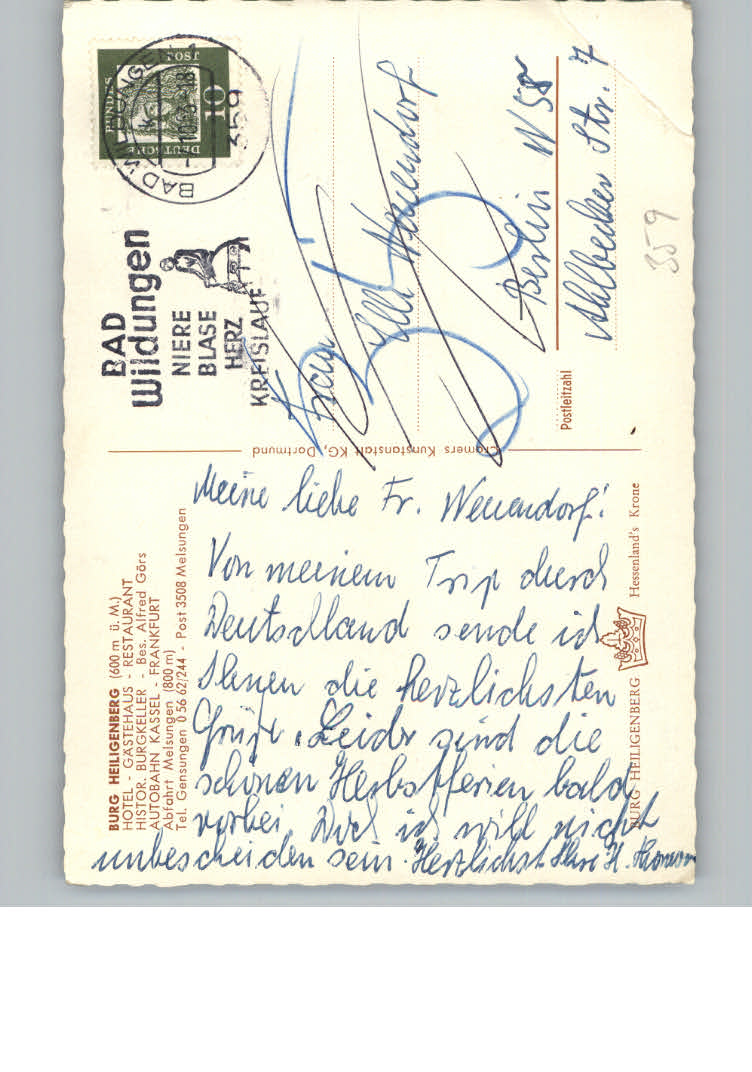 BURG HEILIGENBERG (600 m ü. M.)
HOTEL - GÄSTEHAUS - RESTAURANT
HISTOR. BURGKELLER - Bes. Alfred Görs
AUTOBAHN KASSEL - FRANKFURT
Abfahrt Melsungen (800 m)
Tel. Gensungen 0 56 62/244 - Post 3508 Melsungen
Meine liebe Fr. Neuendorf!
Von meinem Trip durch
Deutschland sende ich
Ihnen die herzlichsten
Grüße. Leider sind die
schönen Herbstferien bald
vorbei. Doch ich will nicht
unbescheiden sein. Herzlichst Ihre H.
BURG HEILIGENBERG Hessenland's Krone
Cramers Kunstanstalt KG, Dortmund
BAD
Wildungen
NIERE
BLASE
HERZ
KREISLAUF
BAD WILDUNGEN 1
359
DEUTSCHE
BUNDESPOST
10
Frau
Elli Neuendorf
Berlin N 58
Ahlbecker Str. 7
Postleitzahl
359